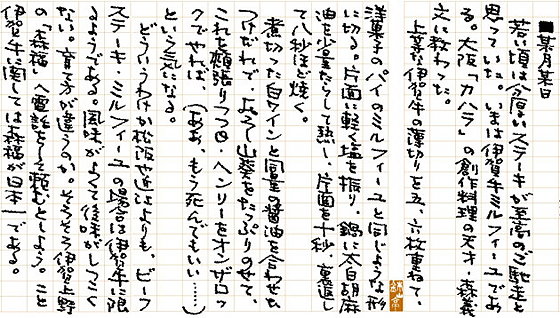 ■某月某日
若い頃は分厚いステーキが至高のご馳走と
思っていた。いまは伊賀牛ミルフィーユであ
る。大阪「カハラ」の創作料理の天才・森義
文に教わった。
上等な伊賀牛の薄切りを五、六枚重ねて、
洋菓子のパイのミルフィーユと同じような形
に切る。片面に軽く塩を振り、鍋に太白胡麻
油を少量たらして熱し、片面を十秒、裏返し
て八秒ほど焼く。
煮切った白ワインと同量の醤油を合わせた
つけだれで、おろし山葵をたっぷりのせて、
これを頬張りつつO・ヘンリーをオンザロッ
クでやれば、(ああ、もう死んでもいい……)
という気になる。
どういうわけか松阪や近江よりも、ビーフ
ステーキ・ミルフィーユの場合は伊賀牛に限
るようである。風味がよくて後味がしつこく
ない。育て方が違うのか。そろそろ伊賀上野
の「森福」へ電話をして頼むとしよう。こと
伊賀牛に関しては森福が日本一である。